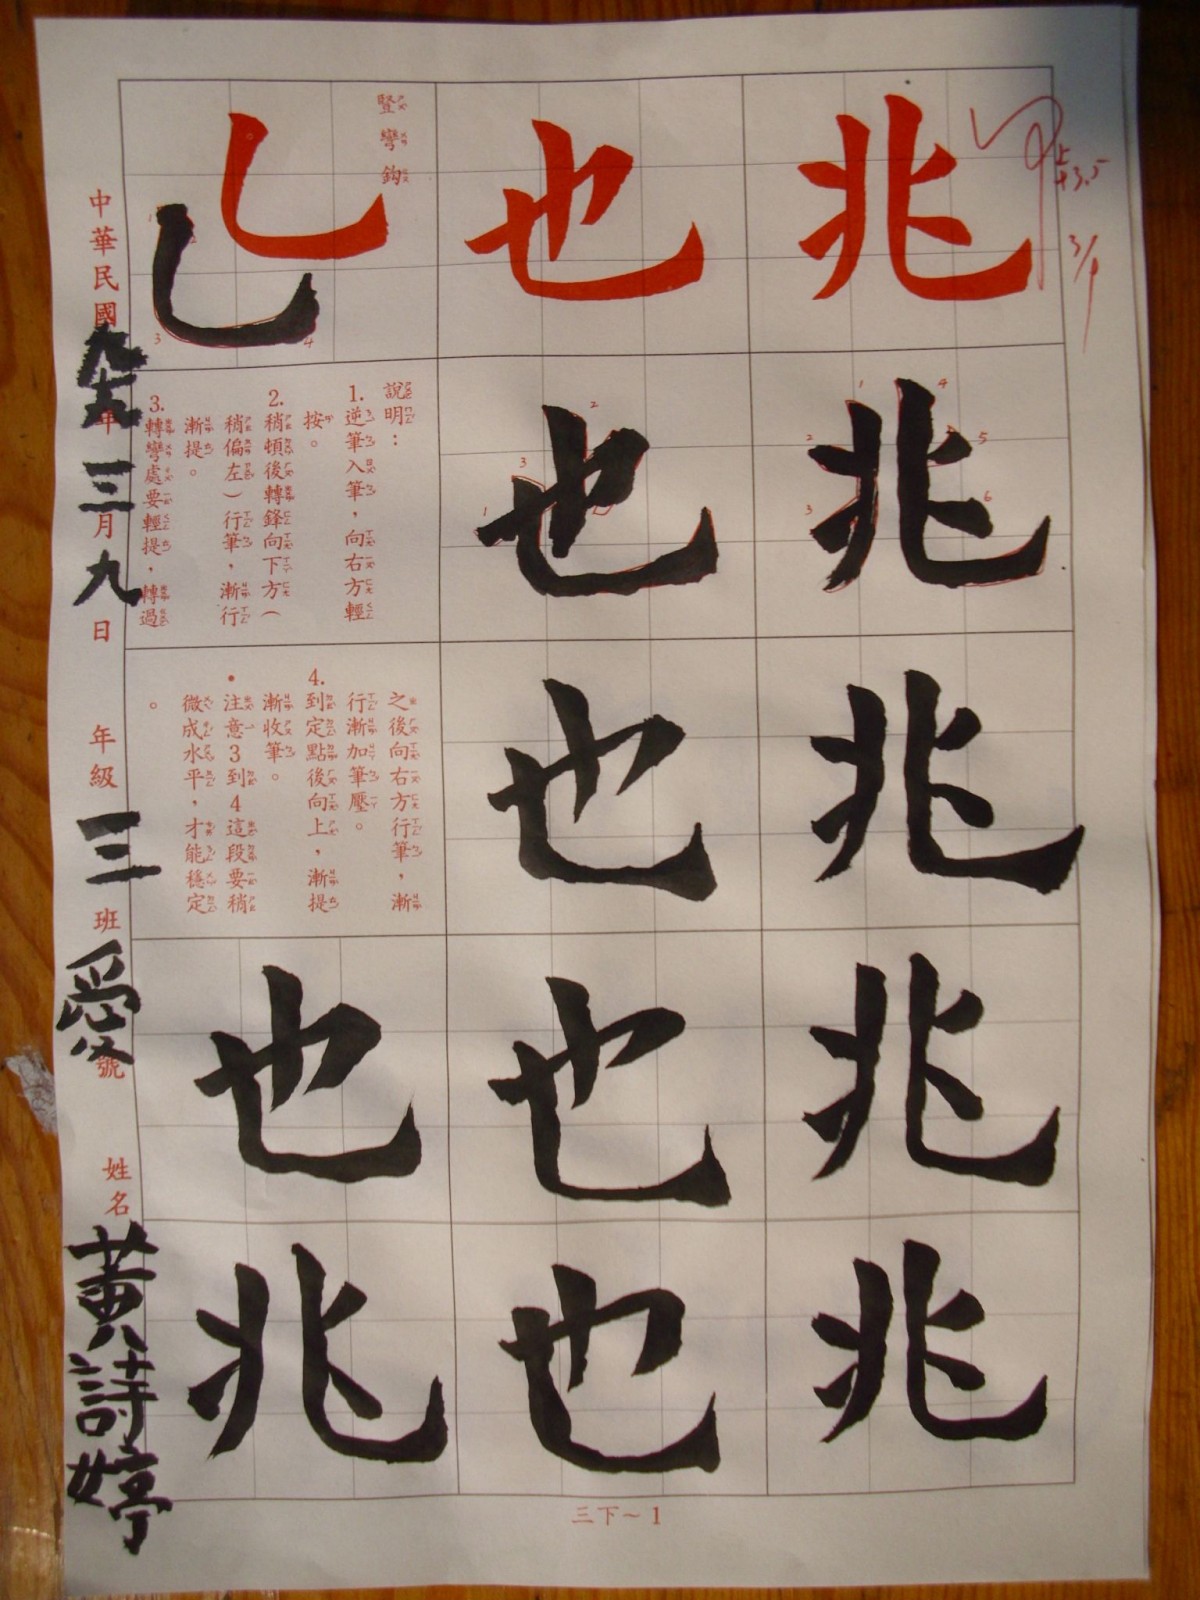 兆
兆
兆
兆
兆
也
也
也
也
也
豎彎鈎
說明：
1.逆筆入筆，向右方輕
按。
2.稍頓後轉鋒向下方（
稍偏左）行筆，漸行
漸提。
3.轉彎處要輕提，轉過
之後向右方行筆，漸
行漸加筆壓。
4.到定點後向上，漸提
漸收筆。
•注意3到4這段要稍
微成水平，才能穩定
。
也
兆
中華民國九十九年三月九日
年級三班愛號
姓名黃詩婷
甲上
+3.5
3/9
1
2
3
4
5
6
1
2
3
1
3
4
三下～1